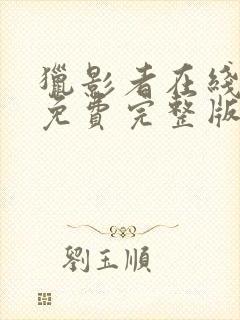 獵影者在綫
免費完整版
劉玉順